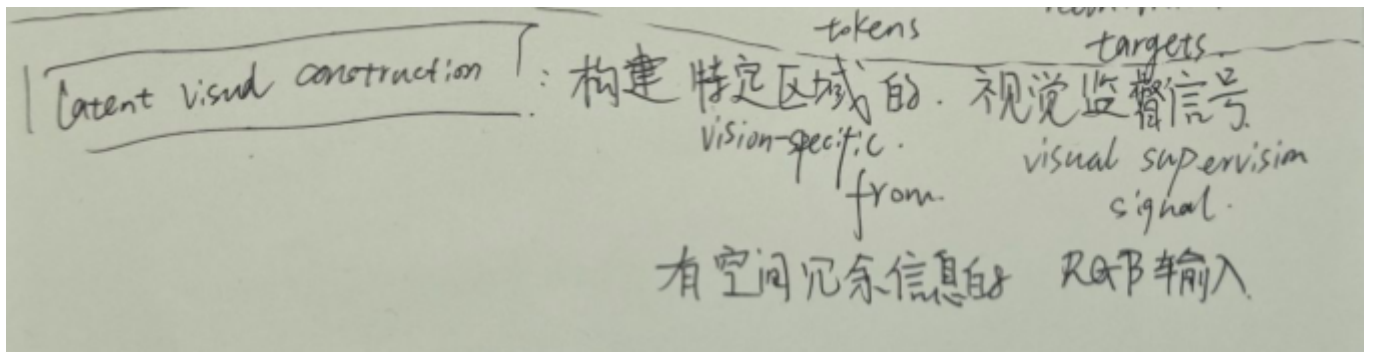 tokens
targets.
Latent visual construction : 构建特定区域的. 视觉监督信号
vision-specific. visual supervision
from. signal.
有空间冗余信息的 RGB输入